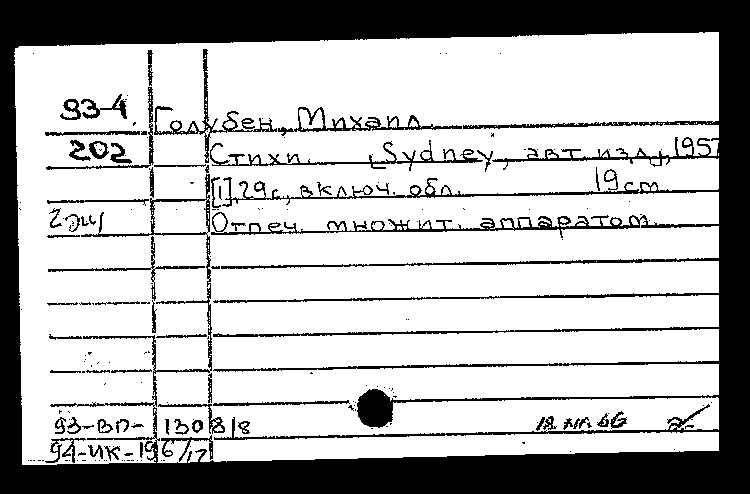 93-4. Голубен, Михаил.
202 Стихи. [Sydney, авт. изд.], 1957
[1], 29 с., включ. обл. 19 cm
2 эк Отпеч. множит. аппаратом.
93-ВП- 130 8/8
94-ИК-196/17